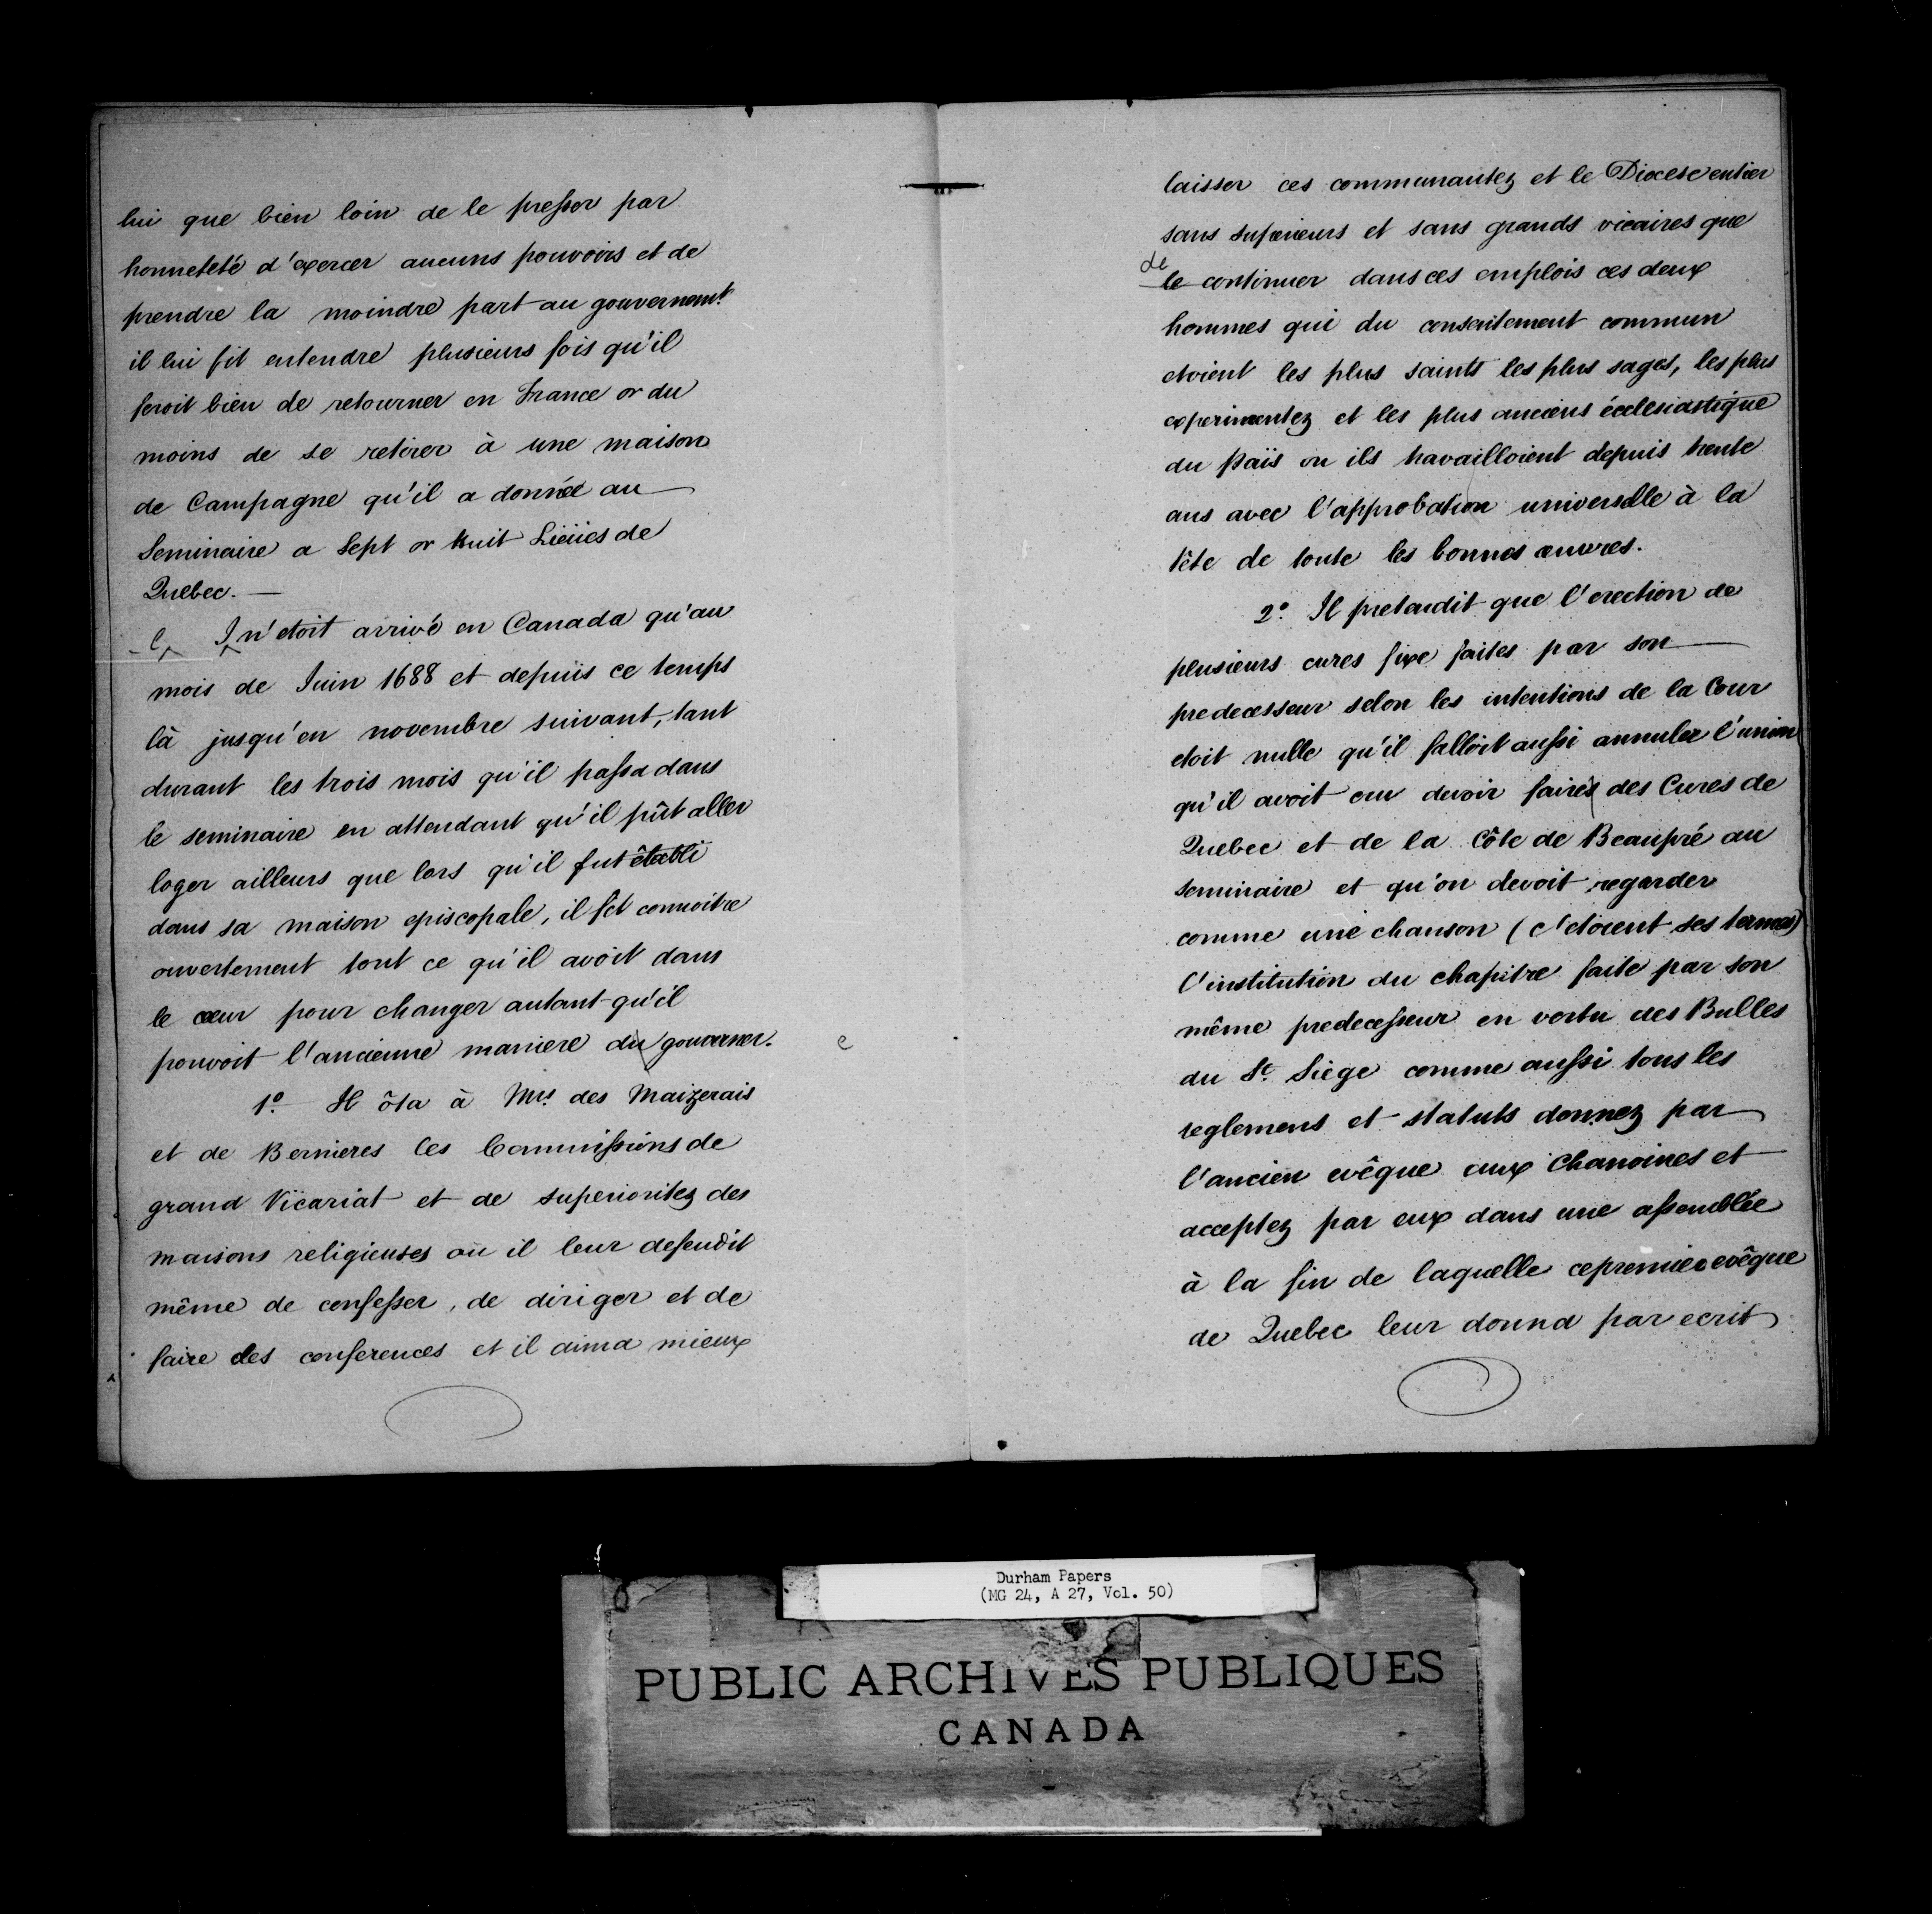 lui que bien loin de le presser par
honneteté d'exercer aucuns pouvoirs et de
prendre la moindre part au gouvernemt.
il lui fit entendre plusieurs fois qu'il
feroit bien de retourner en France or du
moins de se retirer à une maison
de Campagne qu'il a donnée au
Seminaire a Sept or huit Liëües de
Quebec.
l Il n'etoit arrivé en Canada qu'au
mois de Juin 1688 et depuis ce temps
là jusqu'en novembre suivant, tant
durant les trois mois qu'il passa dans
le seminaire en attendant qu'il pût aller
loger ailleurs que lors qu'il fut établi
dans sa maison episcopale, il fit connoitre
ouvertement tout ce qu'il avoit dans
le cœur pour changer autant qu'il
pouvoit l'ancienne maniere du gouverner. e
1º. Il ôta à Mrs. des Maizerais
et de Bernieres les Commissions de
grand Vicariat et de superioritez des
maisons religieuses où il leur defendit
même de confesser, de diriger et de
faire des conferences et il aima mieux
laisser ces communautez et le Diocese entier
sans superieurs et sans grands vicaires que
de
le continuer dans ces emplois ces deux
hommes qui du consentement commun
etoient les plus saints les plus sages, les plus
experimentez et les plus anciens écclesiastique
du païs ou ils travailloient depuis trente
ans avec l'approbation universelle à la
tête de toute les bonnes œuvres.
2º. Il pretendit que l'erection de
plusieurs cures fixe faites par son
predecesseur selon les intentions de la Cour
etoit nulle qu'il falloit aussi annuler l'union
qu'il avoit cru devoir faires des Cures de
Quebec et de la Côte de Beaupré au
seminaire et qu'on devoit regarder
comme une chanson (c'etoient ses termes)
l'institution du chapitre faite par son
même predecesseur en vertu des Bulles
du St. Siege comme aussi tous les
reglemens et statuts donnez par
l'ancien evêque aux Chanoines et
acceptez par eux dans une assemblée
à la fin de laquelle ce premier evêque
de Quebec leur donna par ecrit
Durham Papers
(MG 24, A 27, Vol. 50)
PUBLIC ARCHIVES PUBLIQUES
CANADA